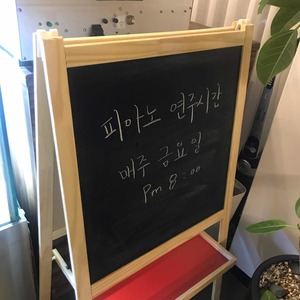 피아노 연주시간
매주 금요일
Pm 8:00